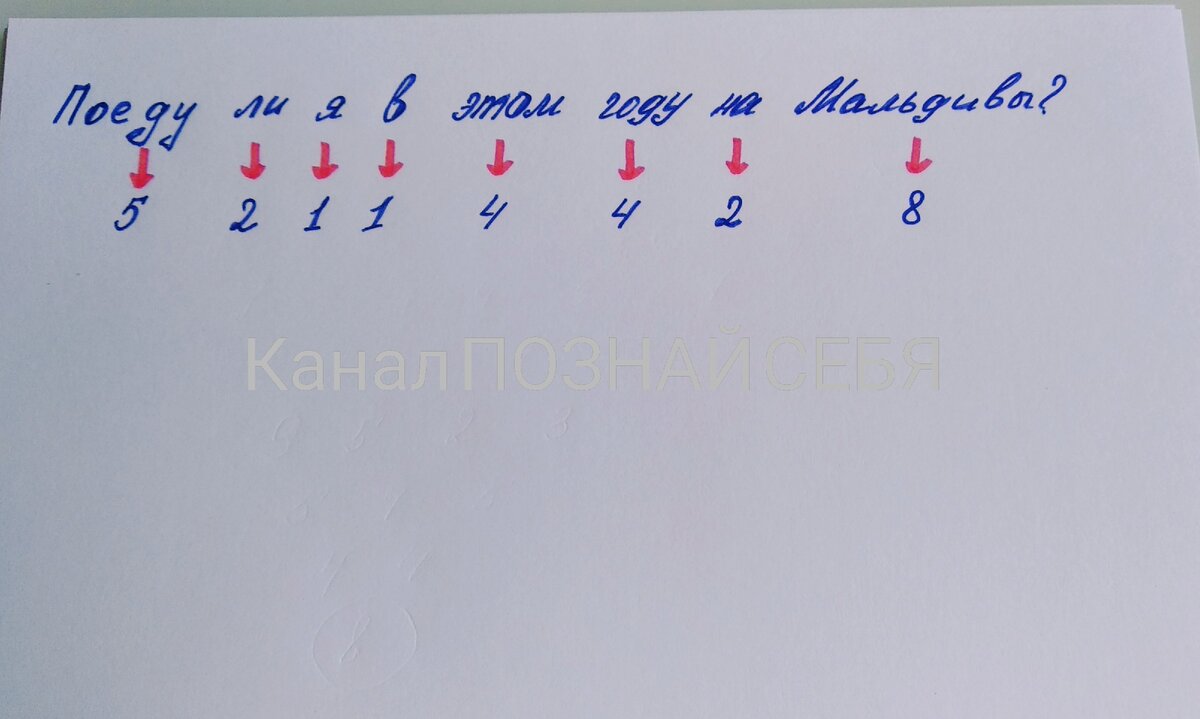 Поеду ли я в этом году на Мальдивы?
5 2 1 1 4 4 2 8
Канал ПОЗНАЙ СЕБЯ